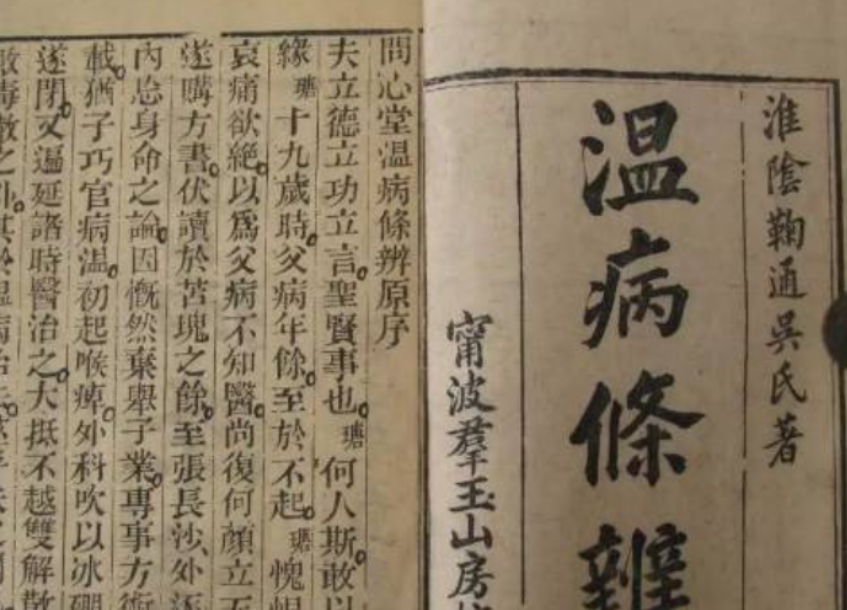 淮陰鞠通吳氏著
温病條辨
甯波羣玉山房
問心堂温病條辨原序
夫立德立功立言聖賢事也瑭何人斯敢以
緣瑭十九歲時父病年餘至於不起瑭愧恨
哀痛欲絶以爲父病不知醫尚復何顏立
遂購方書伏讀於苫塊之餘至張長沙外逐
内忘身命之論因慨然棄舉子業專事方術
載猶子巧官病温初起喉痺外科吹以冰硼
遂閉又遍延諸時醫治之大抵不越雙解散
敗毒散之外其於温病治法